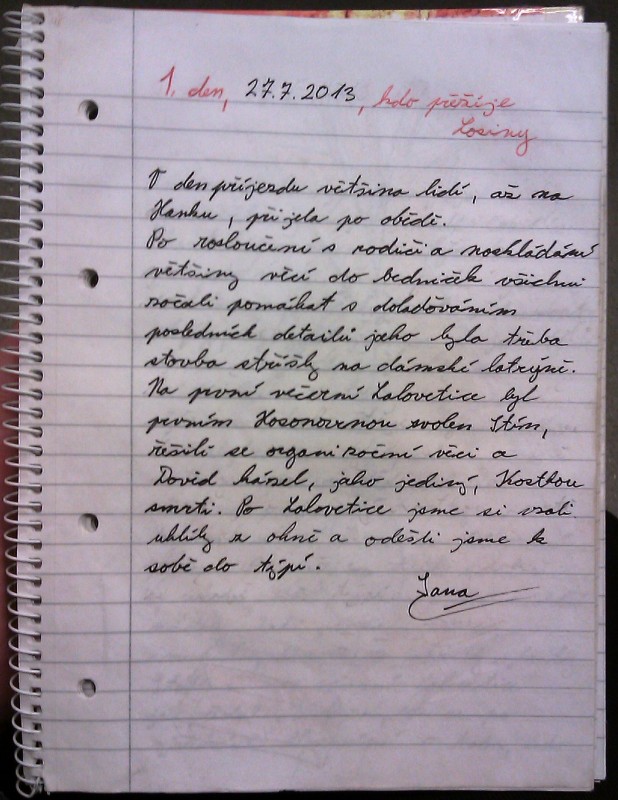 1. den, 27.7.2013, kdo přežije
Losiny
V den příjezdu většina lidí, až na
Hanku, přijela po obědě.
Po rozloučení s rodiči a naskládání
většiny věcí do bedniček všichni
začali pomáhat s dolaďováním
posledních detailů jako byla třeba
stavba stříšky na dámské latrýně.
Na první večerní Lalovetice byl
prvním zvolen Stín,
řešili se organizační věci a
David házel, jako jediný, Kostkou
smrti. Po Lalovetice jsme si vzali
uhlíky z ohně a odešli jsme k
sobě do týpí.
Jana